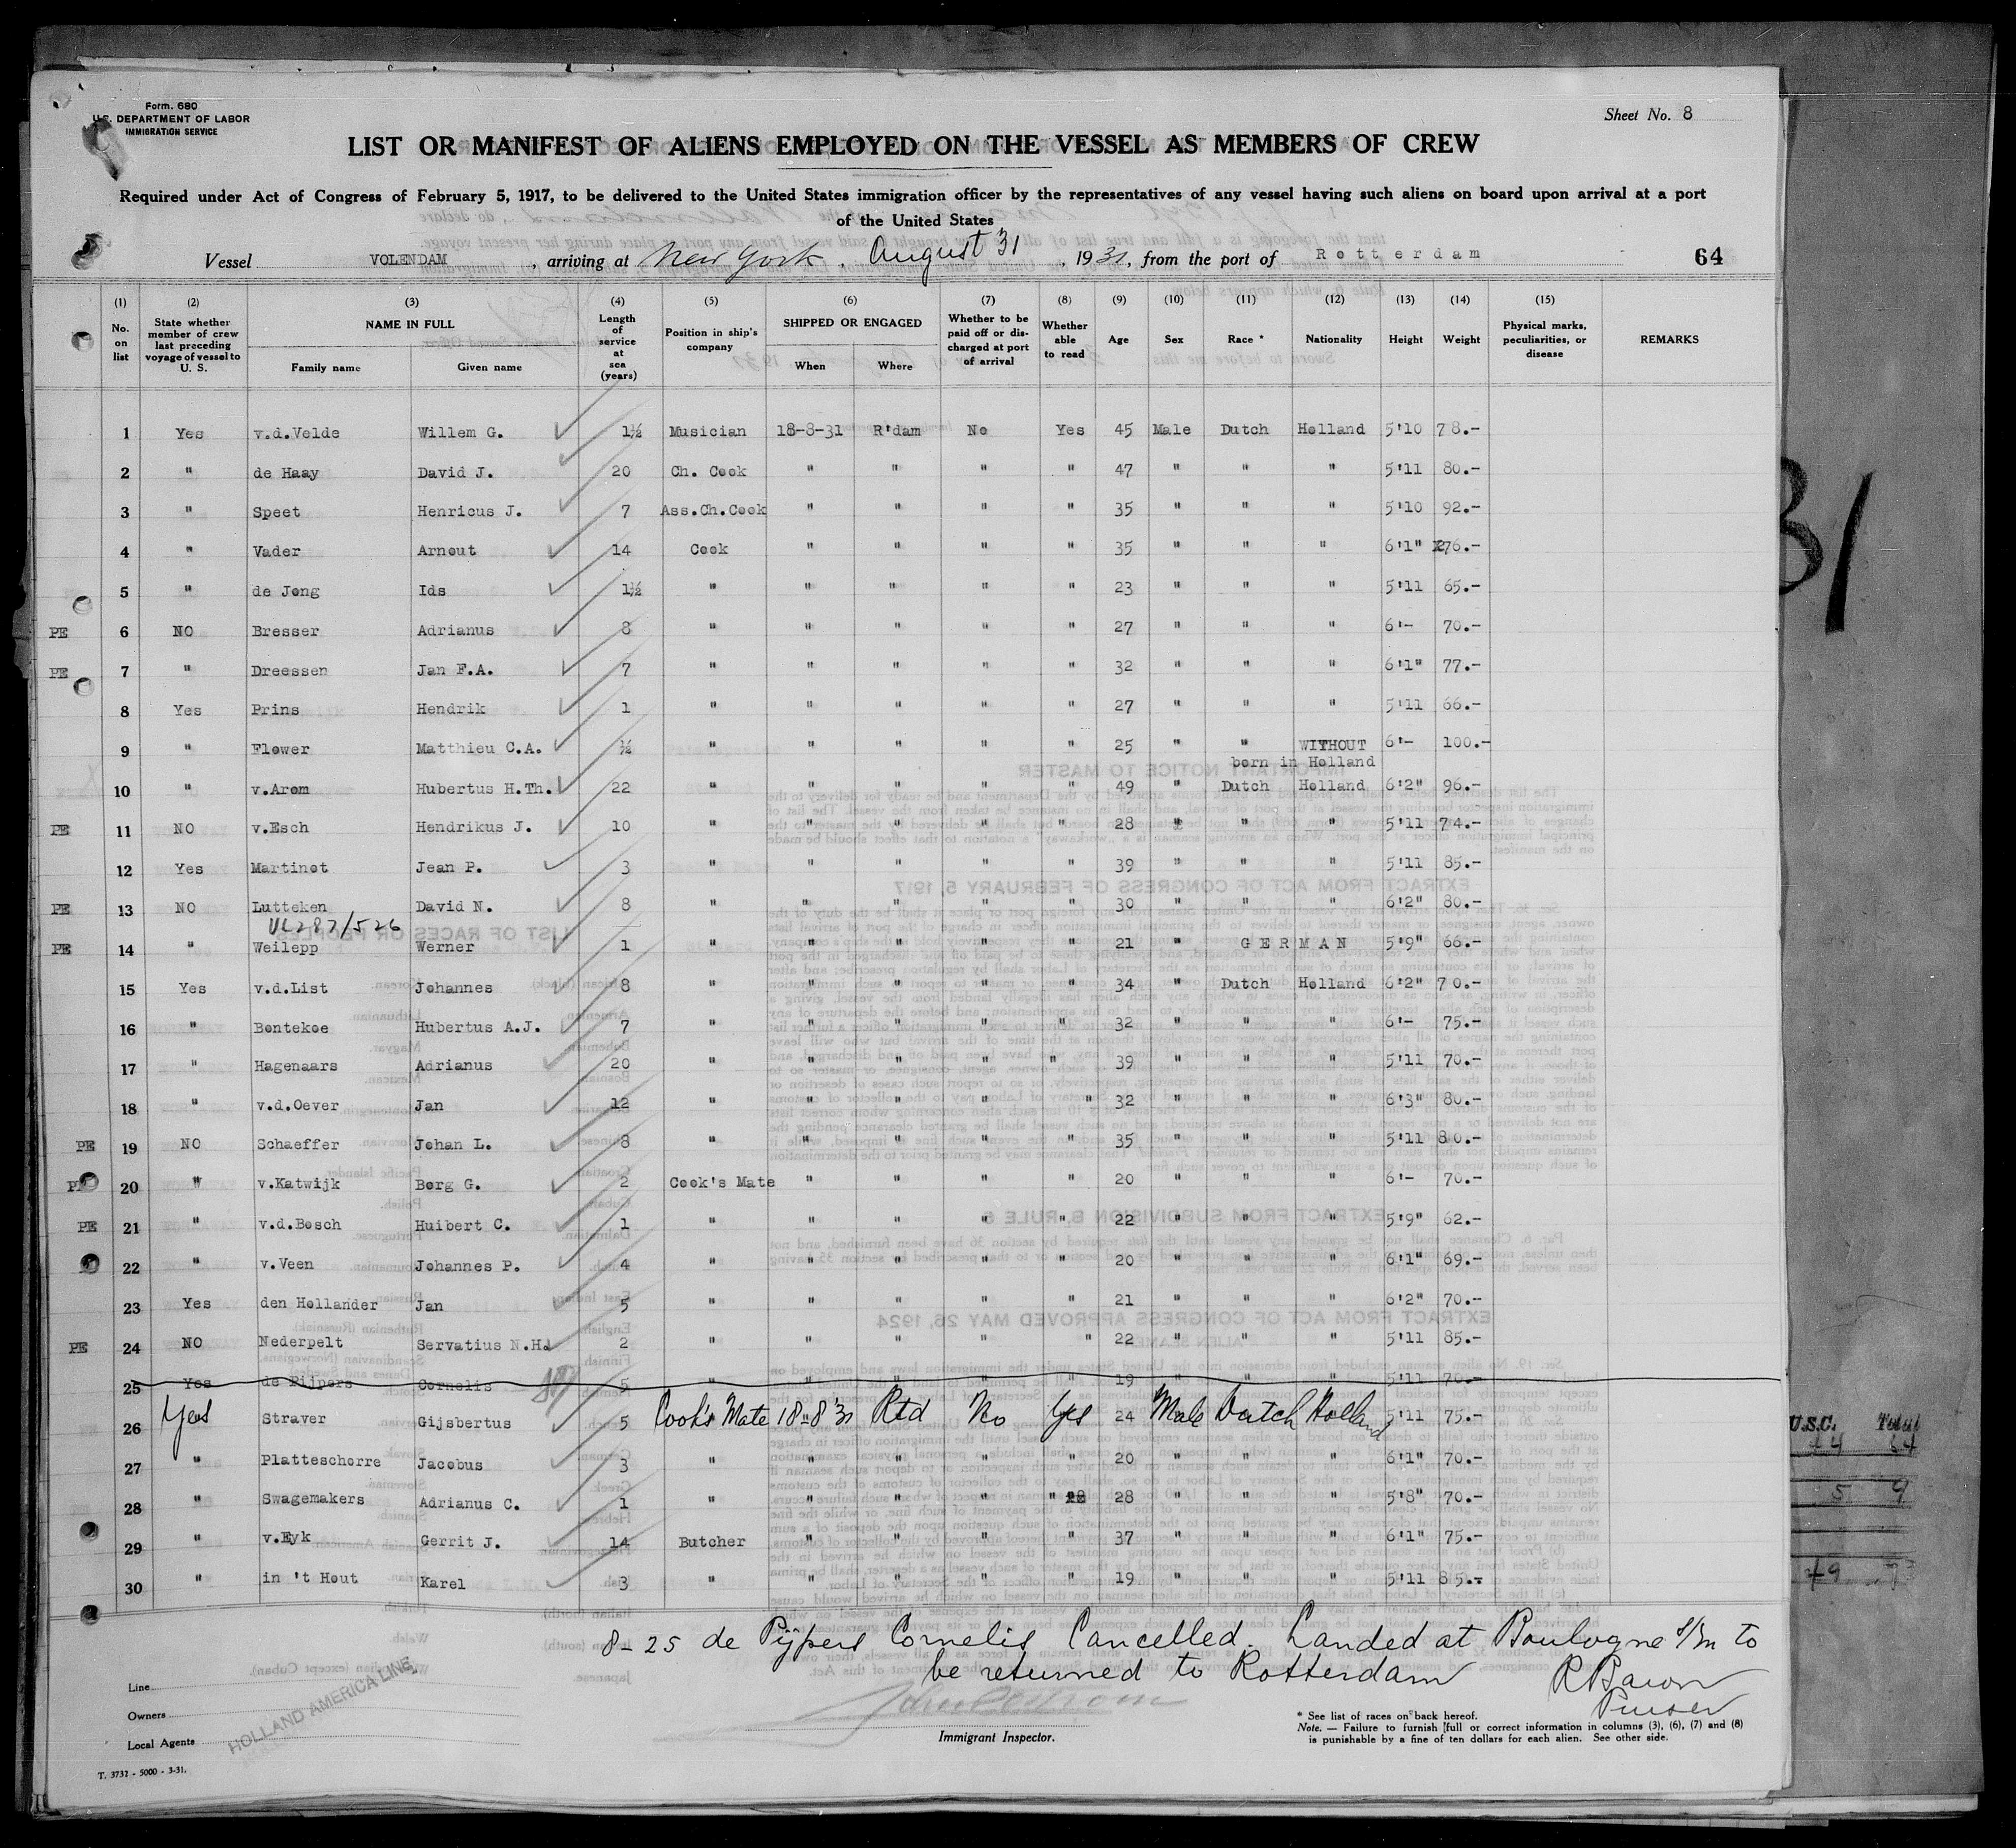 Form. 680
U.S. DEPARTMENT OF LABOR
IMMIGRATION SERVICE
Sheet No. 8
LIST OR MANIFEST OF ALIENS EMPLOYED ON THE VESSEL AS MEMBERS OF CREW
Required under Act of Congress of February 5, 1917, to be delivered to the United States immigration officer by the representatives of any vessel having such aliens on board upon arrival at a port
of the United States
Vessel VOLENDAM, arriving at New York. August 31, 1931, from the port of Rotterdam 64
(1) No. on list (2) State whether member of crew last preceding voyage of vessel to U. S. (3) NAME IN FULL Family name Given name (4) Length of service at sea (years) (5) Position in ship's company (6) SHIPPED OR ENGAGED When Where (7) Whether to be paid off or discharged at port of arrival (8) Whether able to read (9) Age (10) Sex (11) Race * (12) Nationality (13) Height (14) Weight (15) Physical marks, peculiarities, or disease REMARKS
1 Yes v.d.Velde Willem G. 1½ Musician 18-8-31 R'dam No Yes 45 Male Dutch Holland 5'10 78.-
2 " de Haay David J. 20 Ch. Cook " " " " 47 " " " 5'11 80.-
3 " Speet Henricus J. 7 Ass.Ch.Cook " " " " 35 " " " 5'10 92.-
4 " Vader Arnout 14 Cook " " " " 35 " " " 6'1" 76.-
5 " de Jong Ids 1½ " " " " " 23 " " " 5'11 65.-
PE 6 NO Bresser Adrianus 8 " " " " " 27 " " " 6'- 70.-
PE 7 " Dreessen Jan F.A. 7 " " " " " 32 " " " 6'1" 77.-
8 Yes Prins Hendrik 1 " " " " " 27 " " " 5'11 66.-
9 " Flower Matthieu C.A. ½ " " " " " 25 " " WITHOUT 6'- 100.-
born in Holland
10 " v.Arom Hubertus H.Th. 22 " " " " " 49 " Dutch Holland 6'2" 96.-
PE 11 NO v.Esch Hendrikus J. 10 " " " " " 28 " " " 5'11 74.-
12 Yes Martinot Jean P. 3 " " " " " 39 " " " 5'11 85.-
PE 13 NO Lutteken David N. 8 " " " " " 30 " " " 6'2" 80.-
VL287/526
PE 14 " Weilepp Werner 1 " " " " " 21 " GERMAN 5'9" 66.-
15 Yes v.d.List Johannes 8 " " " " " 34 " Dutch Holland 6'2" 70.-
16 " Bontekoe Hubertus A.J. 7 " " " " " 32 " " " 6'- 75.-
17 " Hagenaars Adrianus 20 " " " " " 39 " " " 5'11 70.-
18 " v.d.Oever Jan 12 " " " " " 32 " " " 6'3" 80.-
PE 19 NO Schaeffer Johan L. 8 " " " " " 35 " " " 5'11 80.-
20 " v.Katwijk Borg G. 2 Cook's Mate " " " " 20 " " " 6'- 70.-
PE 21 " v.d.Bosch Huibert C. 1 " " " " " 22 " " " 5'9" 62.-
22 " v.Veen Johannes P. 4 " " " " " 20 " " " 6'1" 69.-
23 Yes den Hollander Jan 5 " " " " " 21 " " " 6'2" 70.-
PE 24 NO Nederpelt Servatius N.H. 2 " " " " " 22 " " " 5'11 85.-
25 Yes de Pijpers Cornelis 5 " " " " " 19 " " " 5'11 70.-
26 Yes Straver Gijsbertus 5 Cook's Mate 18-8'31 Rtd No Yes 24 Male Dutch Holland 5'11 75.-
27 " Platteschorre Jacobus 3 " " " " " 20 " " " 6'1" 70.-
28 " Swagemakers Adrianus C. 1 " " " " " 28 " " " 5'8" 70.-
29 " v.Eyk Gerrit J. 14 Butcher " " " " 37 " " " 6'1" 75.-
30 " in 't Hout Karel 3 " " " " " 19 " " " 5'11 85.-
8-25 de Pijpers Cornelis Cancelled. Landed at Boulogne s/m to
be returned to Rotterdam
R Baron
Purser
Line
Owners
Local Agents
HOLLAND AMERICA LINE
Immigrant Inspector.
* See list of races on back hereof.
Note. — Failure to furnish full or correct information in columns (3), (6), (7) and (8)
is punishable by a fine of ten dollars for each alien. See other side.
T. 3732 - 5000 - 3-31.
31
U.S.C. Total
5 9
49